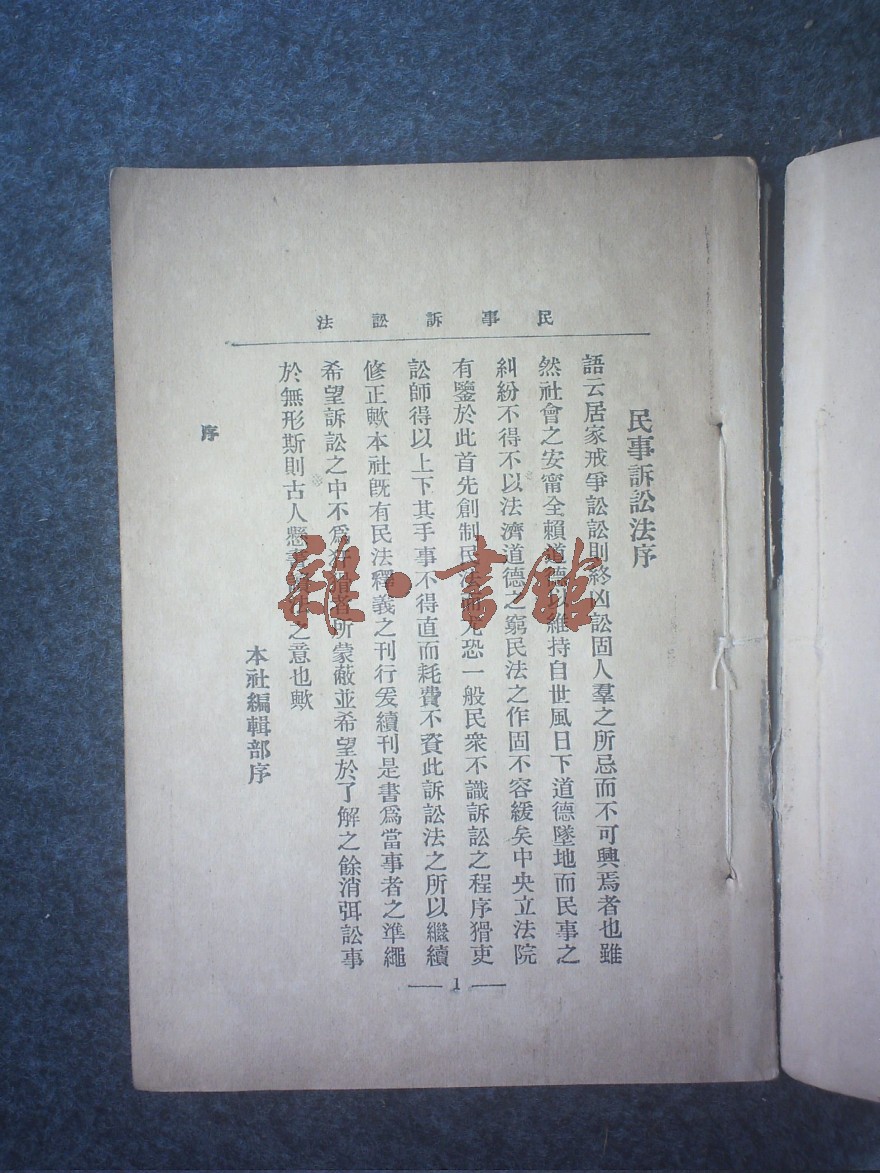 民事訴訟法
民事訴訟法序
語云居家戒爭訟訟則終凶訟固人羣之所忌而不可興焉者也雖
然社會之安甯全賴道德以維持自世風日下道德墜地而民事之
糾紛不得不以法濟道德之窮民法之作固不容緩矣中央立法院
有鑒於此首先創制民法而尤恐一般民衆不識訴訟之程序猾吏
訟師得以上下其手事不得直而耗費不貲此訴訟法之所以繼續
修正歟本社旣有民法釋義之刊行爰續刊是書爲當事者之準繩
希望訴訟之中不爲奸猾者所蒙蔽並希望於了解之餘消弭訟事
於無形斯則古人懸之意也歟
本社編輯部序
序
1
雜·書館